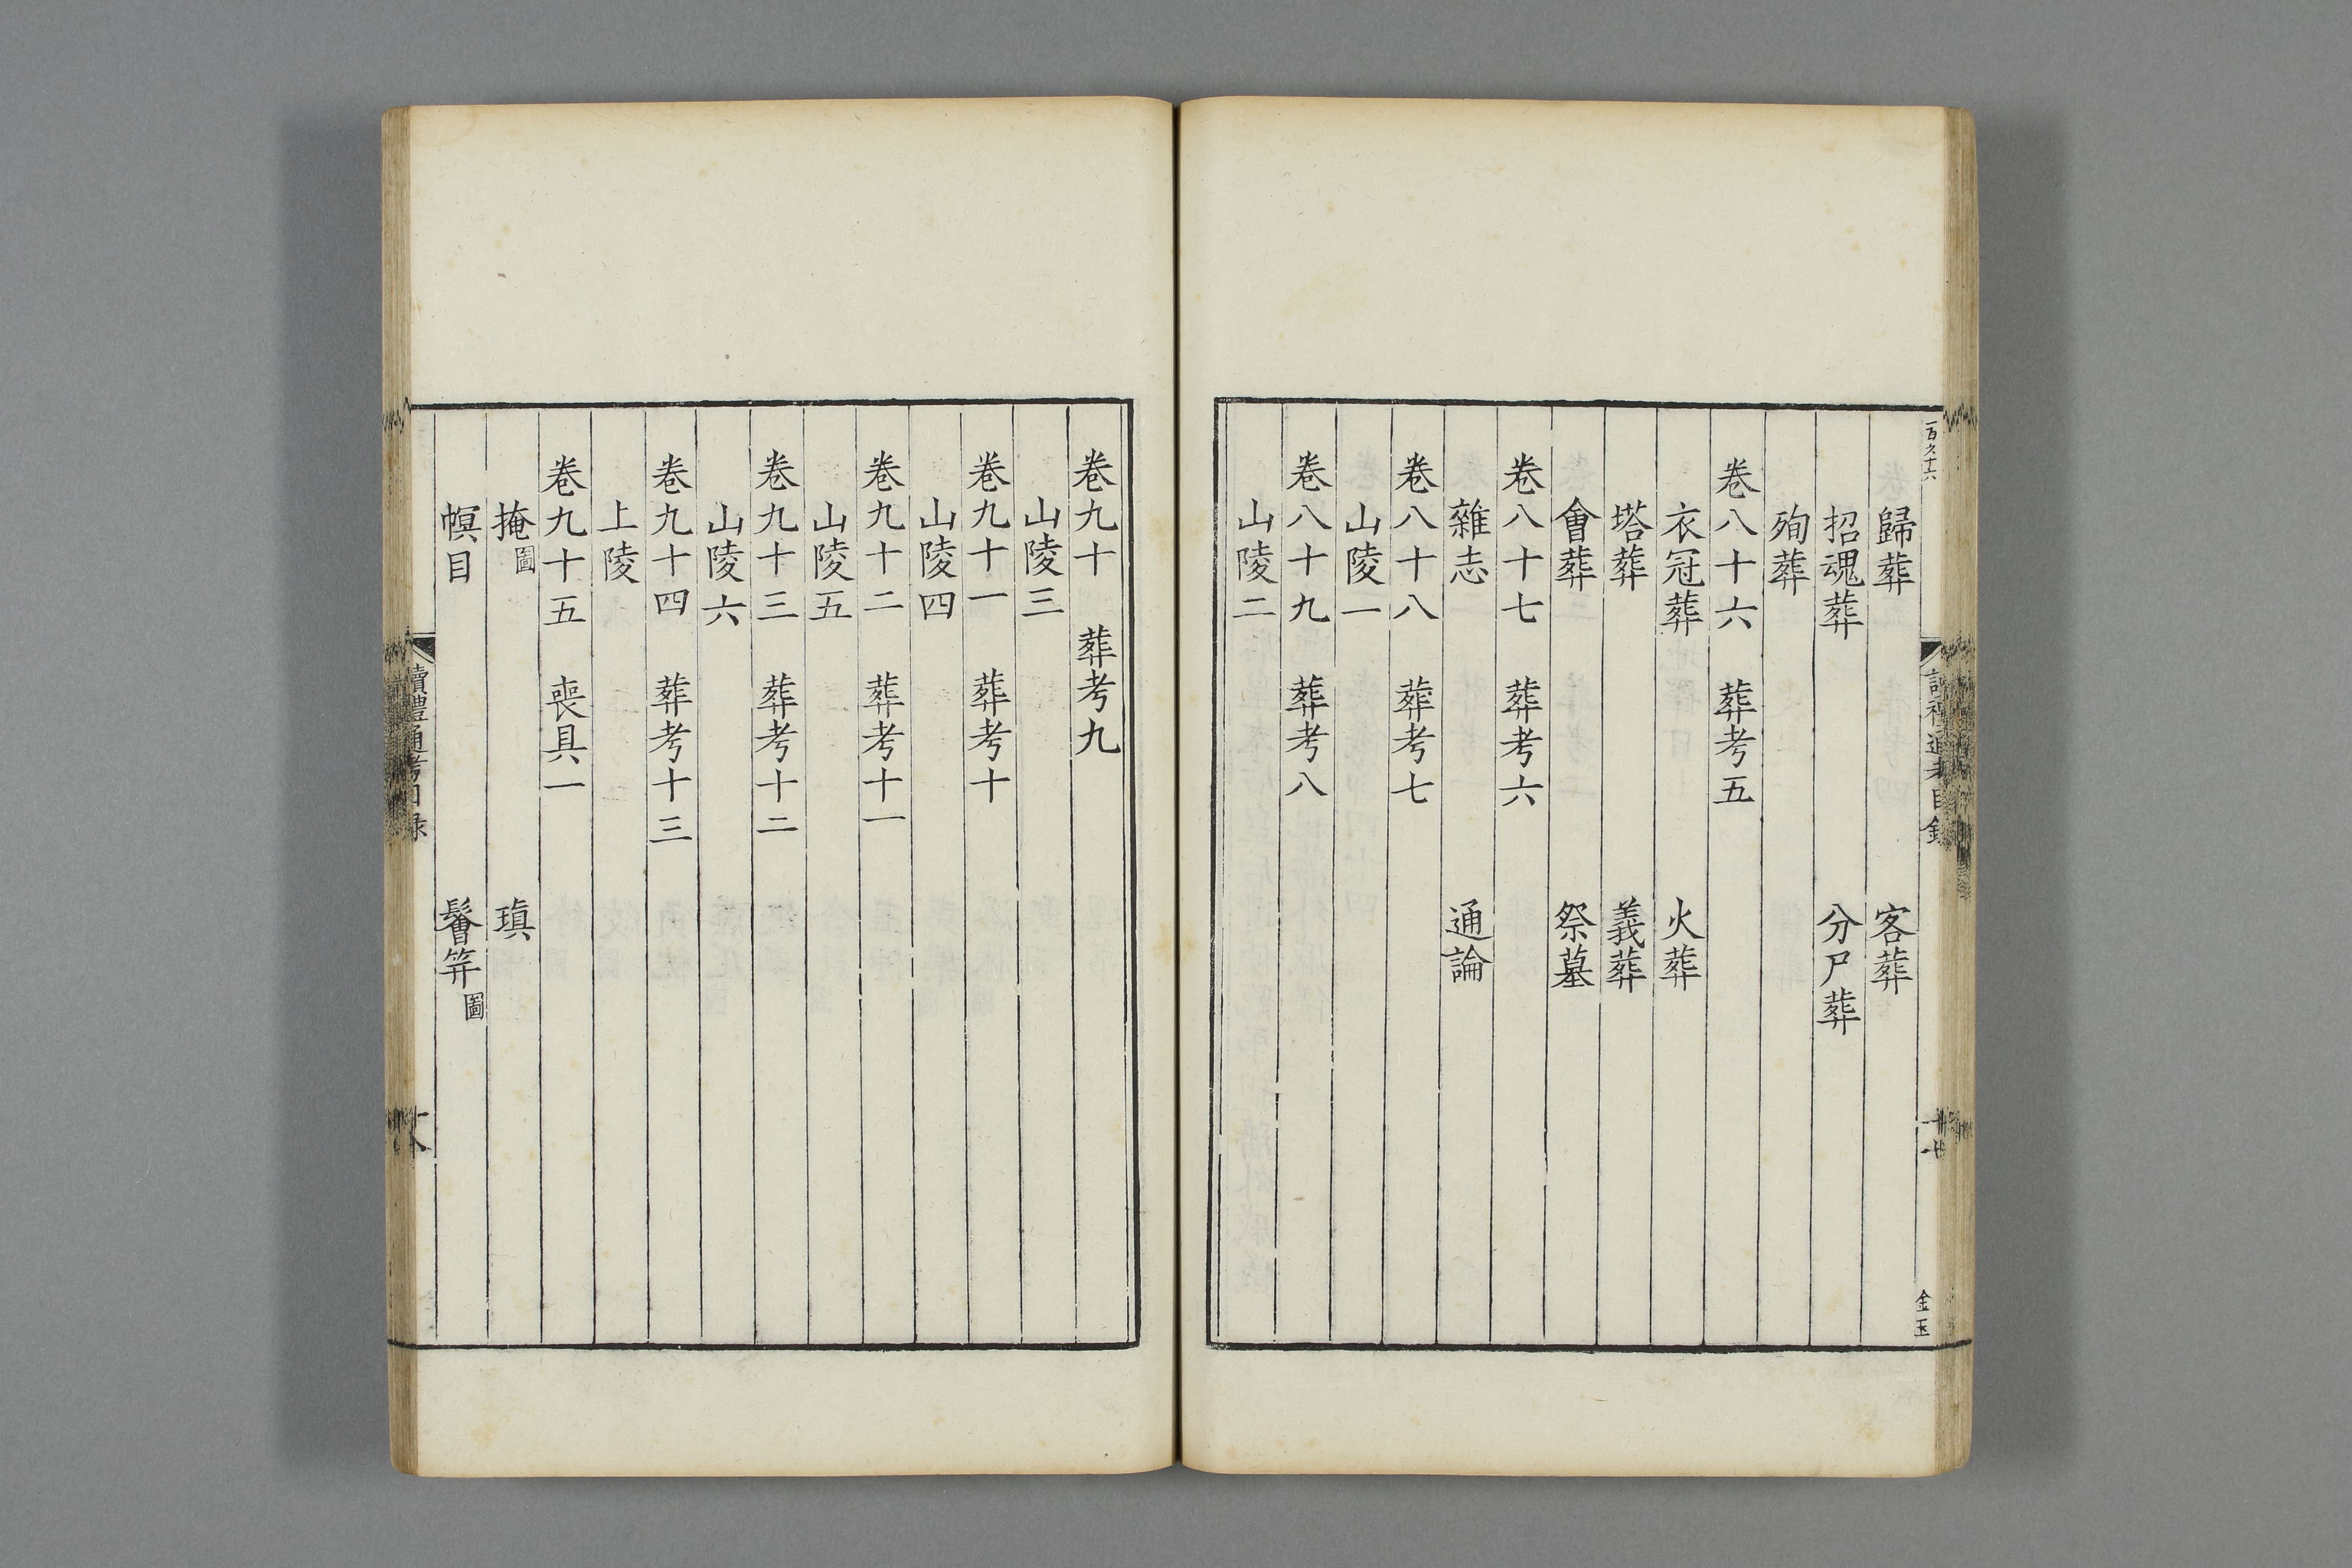 歸葬 客葬
招魂葬 分尸葬
殉葬
卷八十六 葬考五
衣冠葬 火葬
塔葬 義葬
會葬 祭墓
卷八十七 葬考六
雜志 通論
卷八十八 葬考七
山陵一
卷八十九 葬考八
山陵二
金玉
卷九十 葬考九
山陵三
卷九十一 葬考十
山陵四
卷九十二 葬考十一
山陵五
卷九十三 葬考十二
山陵六
卷九十四 葬考十三
上陵
卷九十五 喪具一
掩圖 瑱
幎目 鬠笄圖
讀禮通考目錄